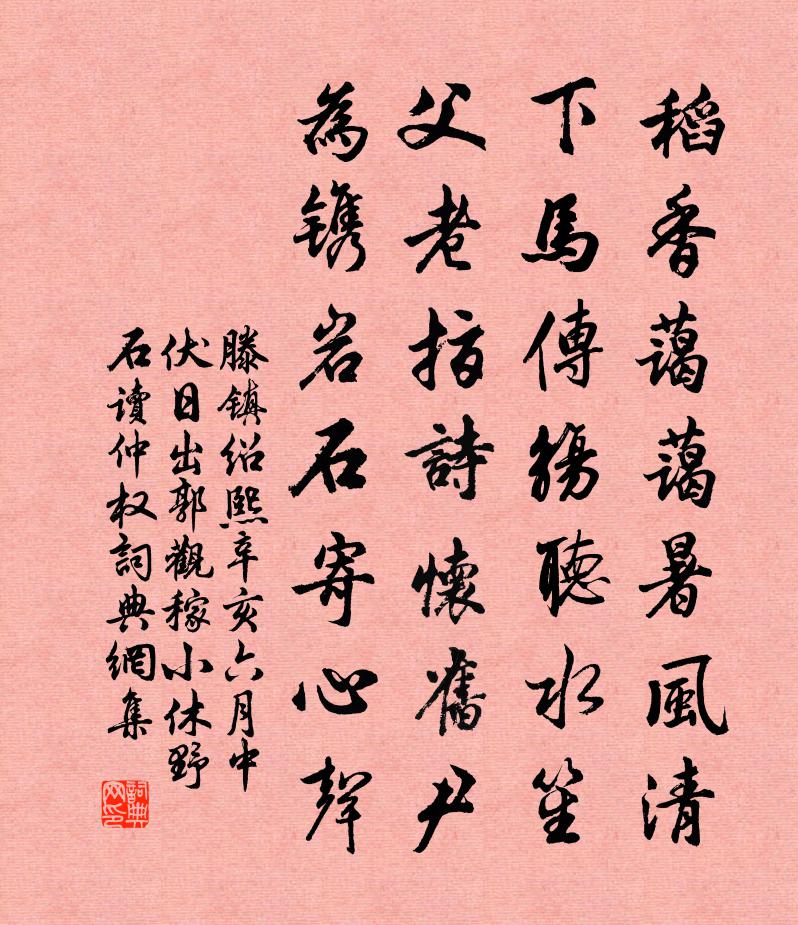 稻香藹藹暑風清
下馬傳觴聽水笙
父老指詩懷舊尹
為鐫岩石寄心聲
滕鎮绍熙辛亥六月中
伏日出郭觀稼小休野
石讀仲权詞典網集
詞典网印